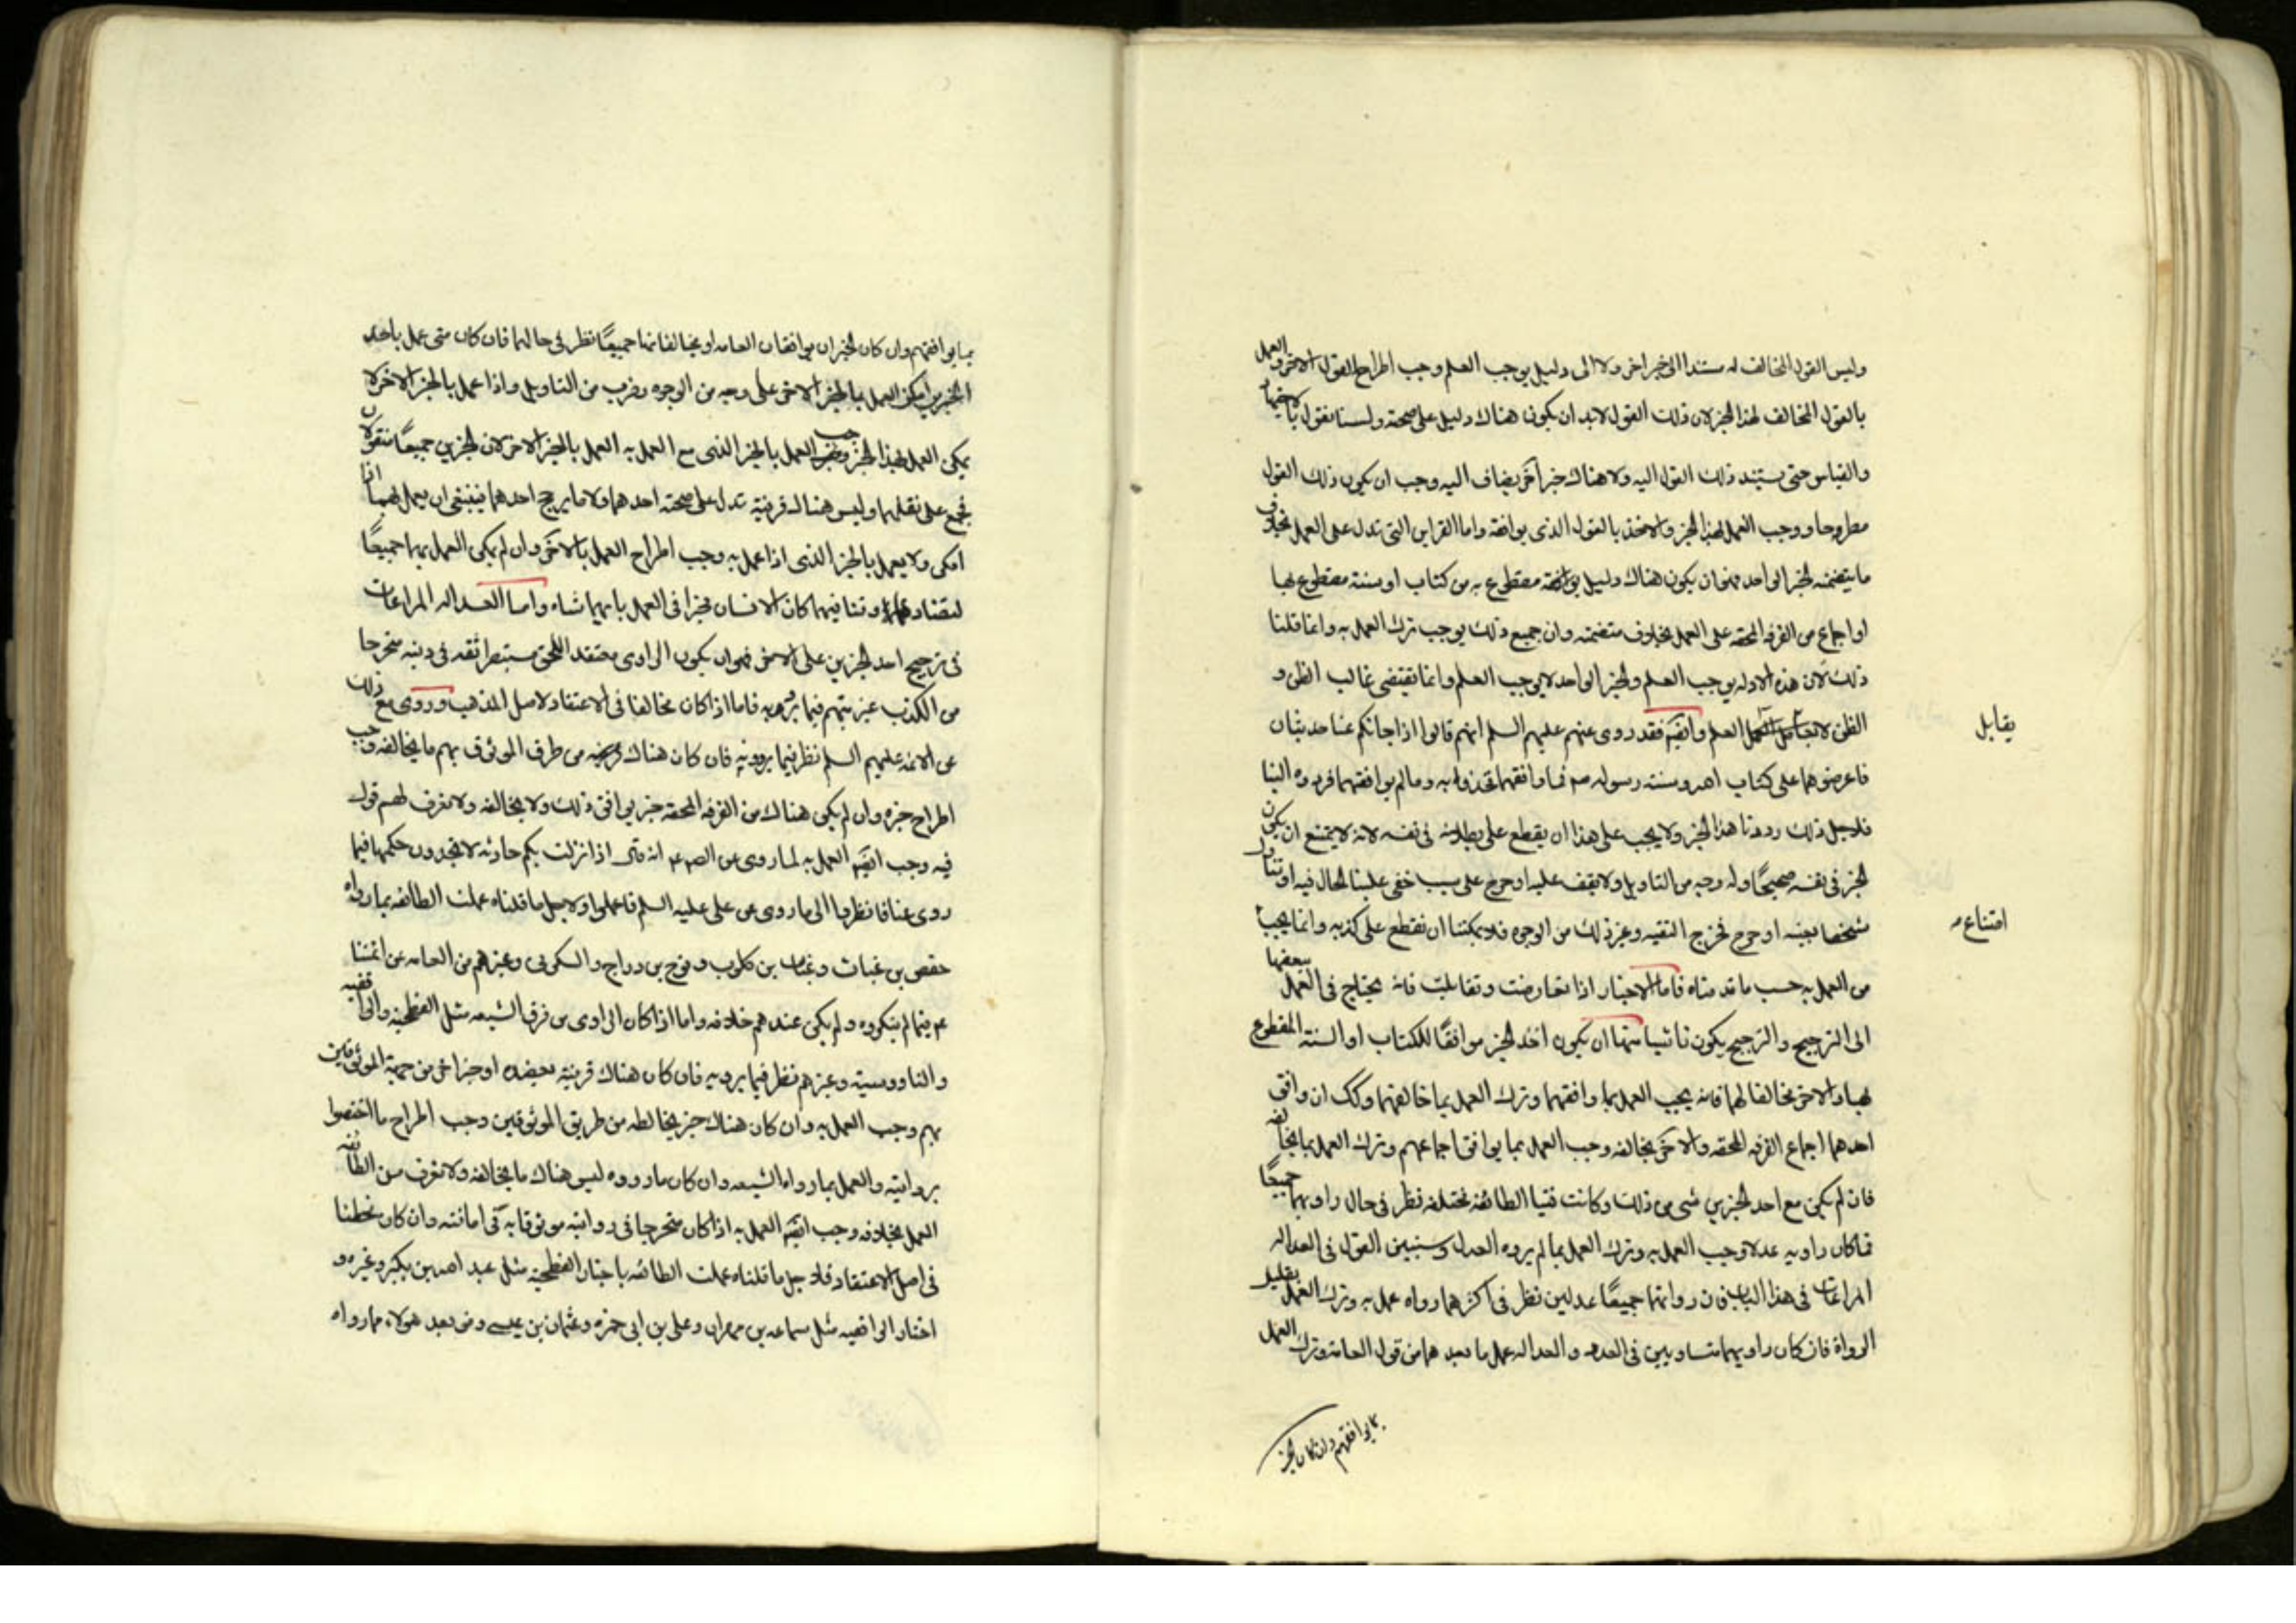 وليس القول المخالف له مستندا الى خبر اخر ولا الى دليل يوجب العلم وجب اطراح القول الاخر والعمل
بالقول المخالف لهذا الخبر لان ذلك القول لابد ان يكون هناك دليل على صحته ولسنا نقول بالاجتهاد
والقياس حتى يستند ذلك القول اليه ولا هناك خبر آخر يضاف اليه وجب ان يكون ذلك القول
مطروحا ووجب العمل بهذا الخبر والاخذ بالقول الذى يوافقه واما القراين التى تدل على العمل بخلاف
ما يتضمنه الخبر الواحد فهو ان يكون هناك دليل مقطوع به من كتاب او سنة مقطوع بها
او اجماع من الفرقه المحقه على العمل بخلاف متضمنه وان جميع ذلك يوجب ترك العمل به وانما قلنا
ذلك لان هذه الادله يوجب العلم والخبر الواحد لا يوجب العلم وانما يقتضى غالب الظن و
الظن لا العلم وايضا فقد روى عنهم عليهم السلم انهم قالوا اذا جائكم عنا حديثان
يقابل
فاعرضوهما على كتاب الله وسنة رسوله ص فما وافقهما فخذوا به وما لم يوافقهما فردوه الينا
فلاجل ذلك رددنا هذا الخبر ولا يجب على هذا ان يقطع على بطلانه فى نفسه لانه لا يمتنع ان يكون
الخبر فى نفسه صحيحًا وله وجه من التاويل ولا نقف عليه او خرج على سبب خفى علينا الحال فيه او تناول
شخصا بعينه او خرج مخرج التقيه وغير ذلك من الوجوه فلا يمكننا ان نقطع على كذبه وانما يجب
امتناع
من العمل به حسب ما قدمناه فاما الاخبار اذا تعارضت وتقابلت فانه يحتاج فى العمل ببعضها
الى الترجيح والترجيح يكون باشياء منها ان يكون احد الخبر موافقًا للكتاب او السنة المقطوع
بها والاخر مخالفا لهما فانه يجب العمل بما وافقهما وترك العمل بما خالفهما وكك ان وافق
احدهما اجماع الفرقه المحقه والاخر يخالفه وجب العمل بما يوافق اجماعهم وترك العمل بما يخالفه
فان لم يكن مع احد الخبرين شى من ذلك وكانت فتيا الطائفه مختلفه نظر فى حال راويهما جميعًا
فما كان راويه عدلا وجب العمل به وترك العمل بما لم يروه العدل وسنبين القول فى العداله
المراعات فى هذا الباب فان رواتهما جميعًا عدلين نظر فى اكثرهما رواه عمل به وترك العمل بقليل
الرواة فان كان راويهما متساويين فى العدد والعداله عمل ما بعدهما من قول العامة وترك العمل
بما يوافقهم وان كان الخبر
بما يوافقهم وان كان الخبران يوافقان العامه او يخالفانها جميعًا نظر فى حالهما فان كان متى عمل باحد
الخبرين امكن العمل بالخبر الاخر على وجه من الوجوه وضرب من التاويل واذا عمل بالخبر الاخر لا
يمكن العمل بهذا الخبر وجب العمل بالخبر الذى مع العمل به العمل بالخبر الاخر لان الخبرين جميعًا منقولان
مجمع على نقلهما وليس هناك قرينة تدل على صحة احدهما ولا ما يرجح احدهما فينبغى ان يعمل بهما اذا
امكن ولا يعمل بالخبر الذى اذا عمل به وجب اطراح العمل بالاخر وان لم يكن العمل بهما جميعًا
لتضادهما وتنافيهما كان الانسان مخيرا فى العمل بايهما شاء واما العداله المراعات
فى ترجيح احد الخبرين على الاخر فهو ان يكون الراوى معتقد اللحق مستبصرا ثقه فى دينه متحرجا
من الكذب غير متهم فيما يرويه فاما اذا كان مخالفا فى الاعتقاد لاصل المذهب وروى مع ذلك
عن الائمه عليهم السلم نظر فيما يرويه فان كان هناك من طرف الموثوق بهم ما يخالفه وجب
اطراح خبره وان لم يكن هناك من الفرقه المحقه خبر يوافق ذلك ولا يخالفه ولا نعرف لهم قول
فيه وجب ايضا العمل به لما روى عن الص ع انه قال اذا نزلت بكم حادثه لا تجدون حكمها فيما
روى عنا فانظروا الى ما روى عن على عليه السلم فاعملوا ولاجل ما قلناه عملت الطائفه بما رواه
حفص بن غياث وغياث بن كلوب ونوح بن دراج والسكونى وغيرهم من العامه عن ائمتنا
ع فيما لم ينكروه ولم يكن عندهم خلافه واما اذا كان الراوى من فرق الشيعه مثل الفطحيه والواقفيه
والناووسية وغيرهم نظر فيما يرويه فان كان هناك قرينة تعضده او خبر اخر من جهة الموثوقين
بهم وجب العمل به وان كان هناك خبر يخالطه من طريق الموثوقين وجب اطراح ما اختصوا
بروايته والعمل بما رواه الشيعه وان كان ما رووه ليس هناك ما يخالفه ولا نعرف من الطائفه
العمل بخلافه وجب ايضا العمل به اذا كان متحرجا فى روايته موثوقا به فى امانته وان كان مخطئا
فى اصل الاعتقاد فلاجل ما قلناه عملت الطائفه باخبار الفطحيه مثل عبد الله بن بكير وغيره و
اخبار الواقفيه مثل سماعه بن مهران وعلى بن ابى حمزه وعثمان بن عيسى ومن بعد هولاء بما رواه